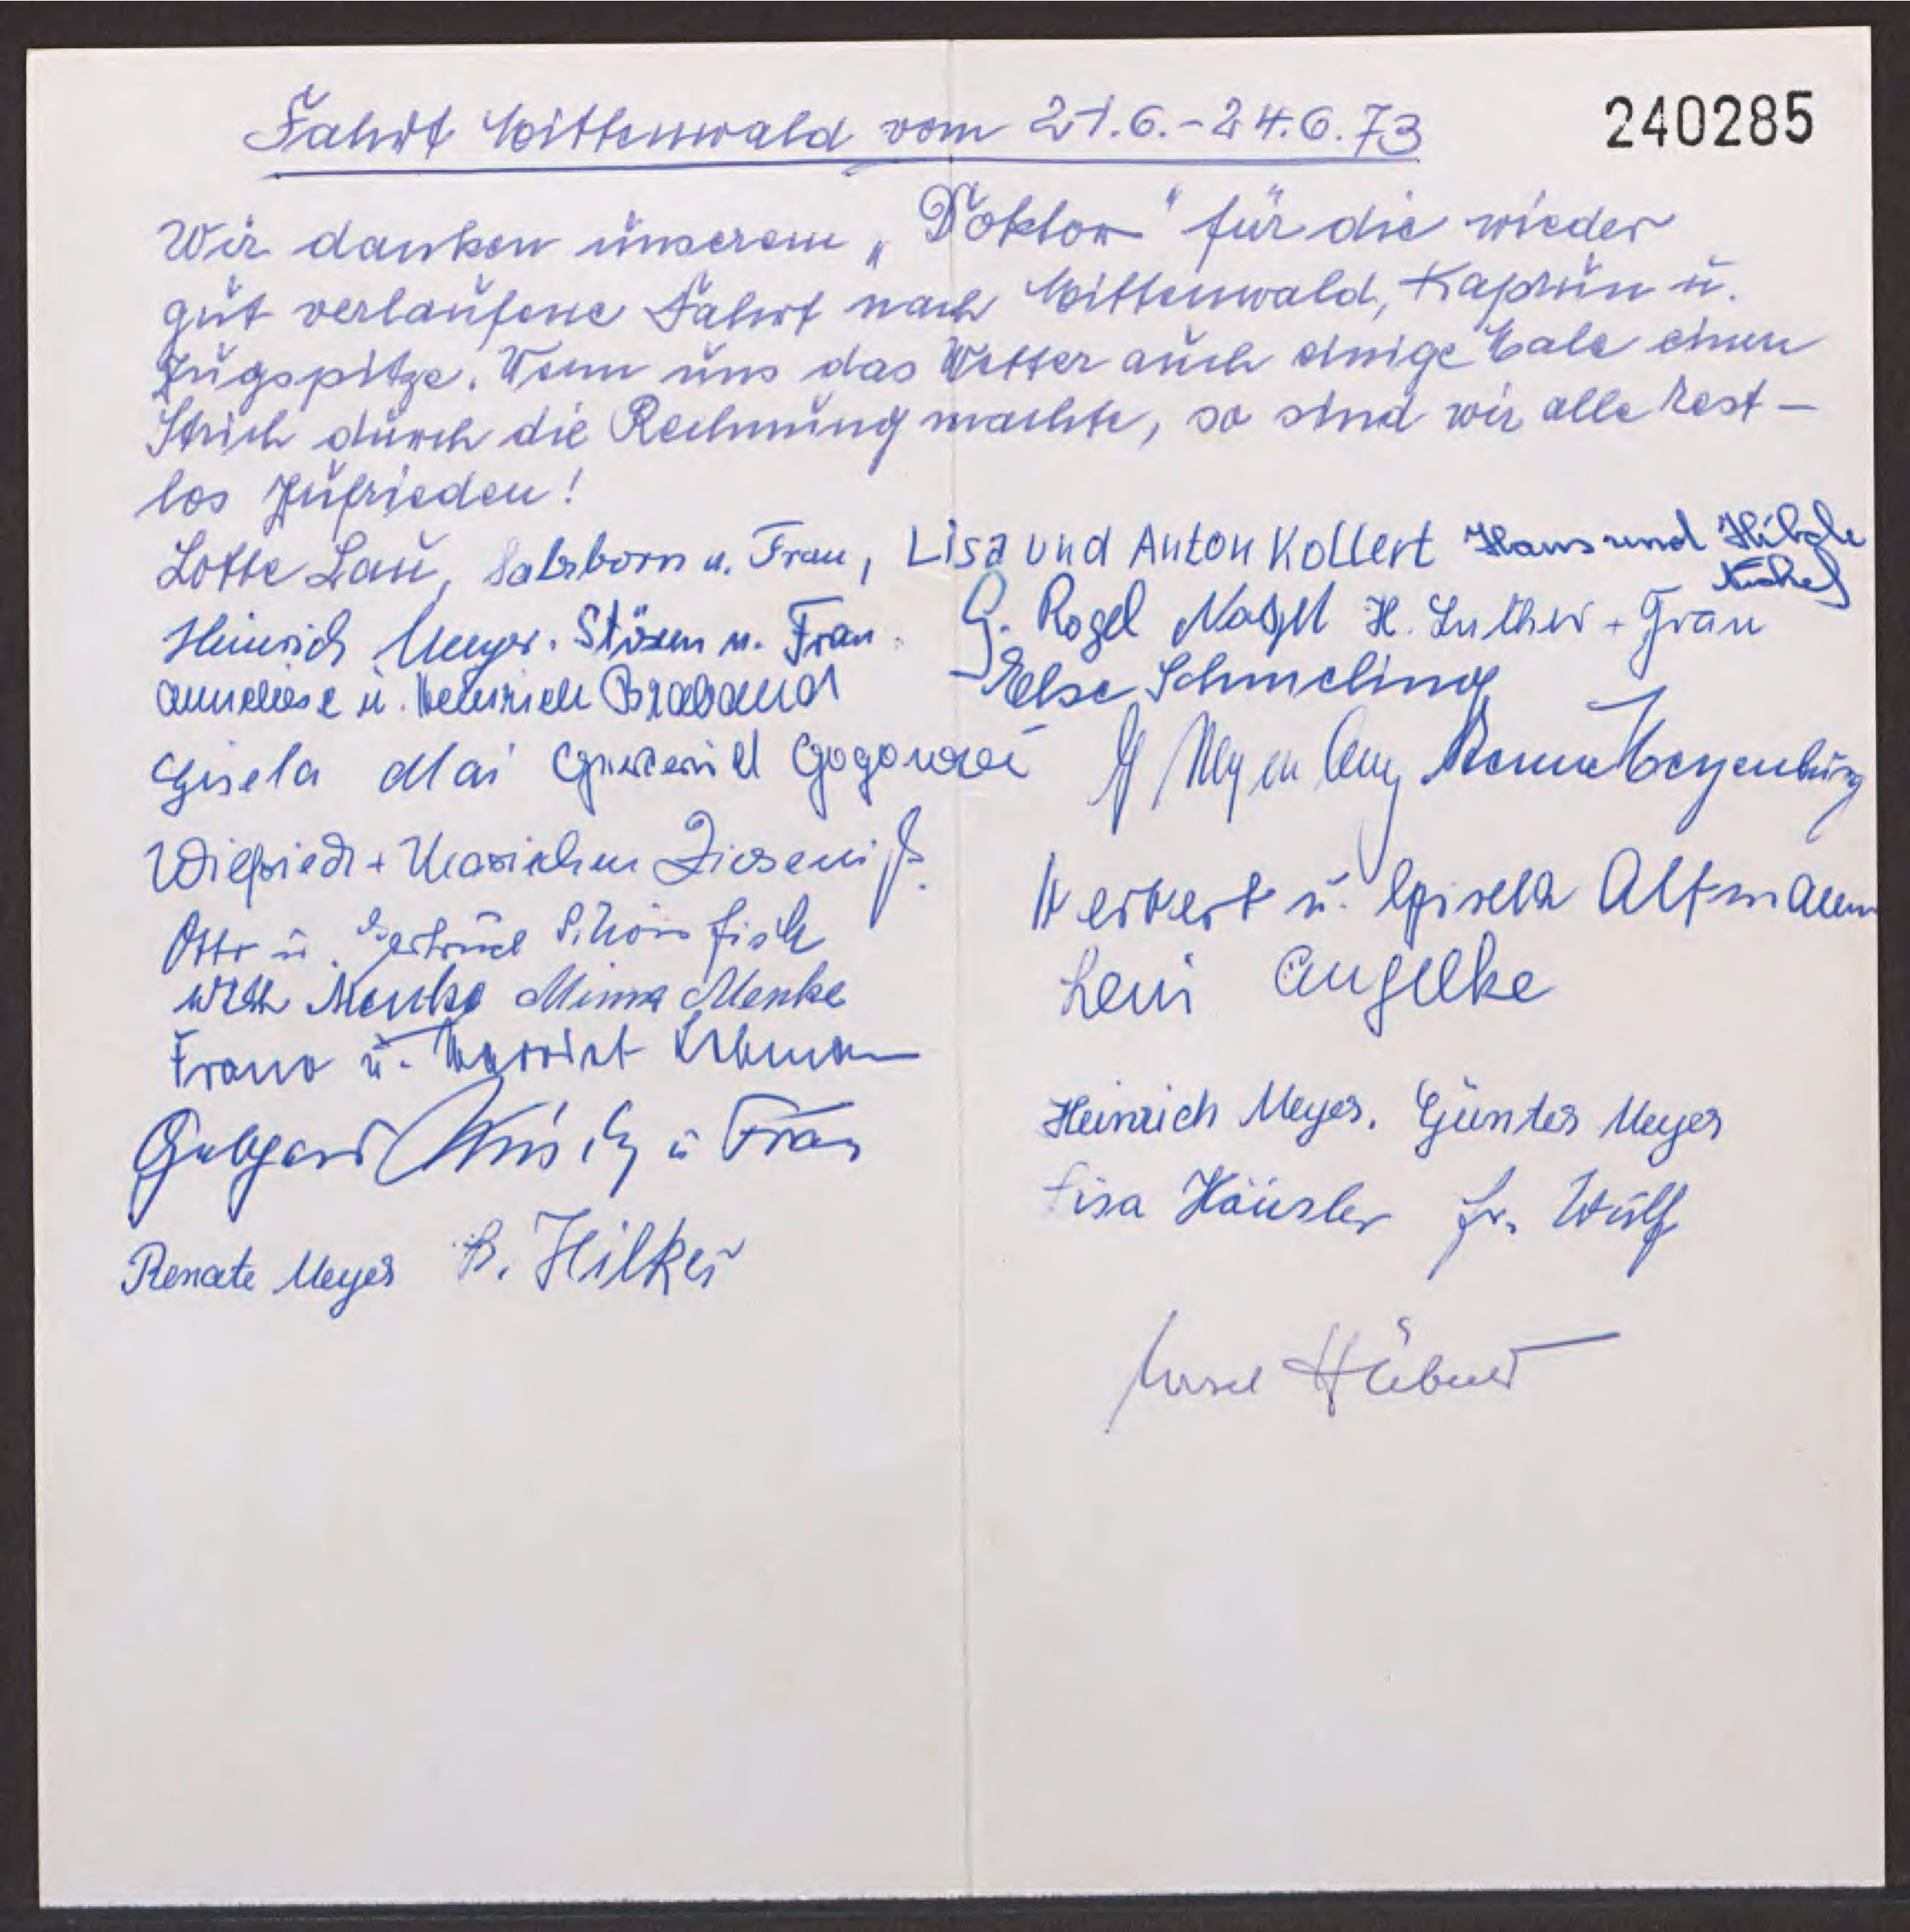 Fahrt Mittenwald vom 21.6.-24.6.73
240285
Wir danken unserem „Doktor" für die wieder
gut verlaufene Fahrt nach Mittenwald, Kaprun u.
Zugspitze. Wenn uns das Wetter auch einige Male einen
Strich durch die Rechnung machte, so sind wir alle rest-
los zufrieden!
Lotte Lau, Salzborn u. Frau, Lisa und Anton Kollert Hans und
Heinrich Meyer. Stöxen u. Frau. G. Rogel Nagel H. Luther + Frau
Anneliese u. Heinrich Braband Else Schmeling
Gisela Mai Meyenburg
Wilfried + Mariechen Zieseniß.
Herbert u. Gisela Altmann
Otto u. Gertrud Schönfisch
Leni Engelke
Willi Menke Minna Menke
Franz u. Harriet
u. Frau
Heinrich Meyer. Günter Meyer
Lisa Häusler Fr. Wulf
Renate Meyer B. Hilker
Hübner